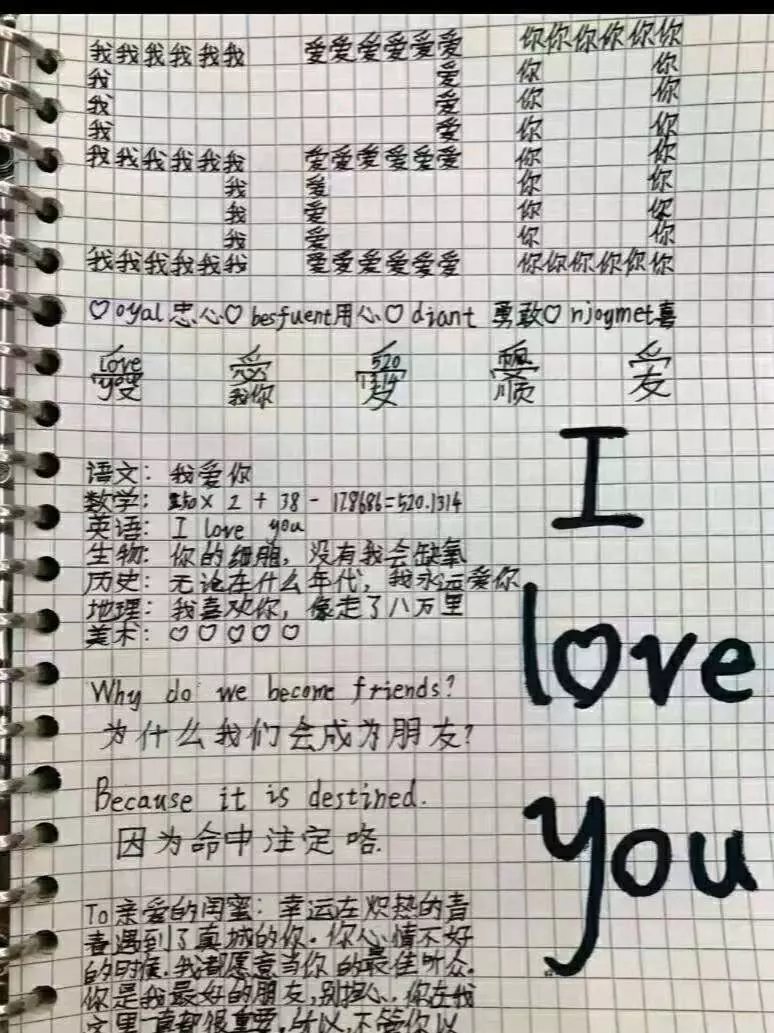 我我我我我我 爱爱爱爱爱爱 你你你你你你
我 爱 你 你
我 爱 你 你
我 爱 你 你
我我我我我我 爱爱爱爱爱爱 你你你你你你
我 爱 你 你
我 爱 你 你
我 爱 你 你
我我我我我我 爱爱爱爱爱爱 你你你你你你
♡oyal忠心♡besfuent用心♡diant 勇敢♡njoymet喜
love you 我你 520 1314 顺 友
I
语文：我爱你
数学：250×2+38-128686=520.1314
英语：I love you
生物：你的细胞，没有我会缺氧
历史：无论在什么年代，我永远爱你
地理：我喜欢你，像走了八万里
美术：♡♡♡♡♡
love
Why do we become friends?
为什么我们会成为朋友？
Because it is destined.
因为命中注定咯.
you
To亲爱的闺蜜：幸运在炽热的青
春遇到了真城的你.你心情不好
的时候.我都愿意当你的最佳听众.
你是我最好的朋友,别担心.你在我
这里一直都很重要.所以,不管你以